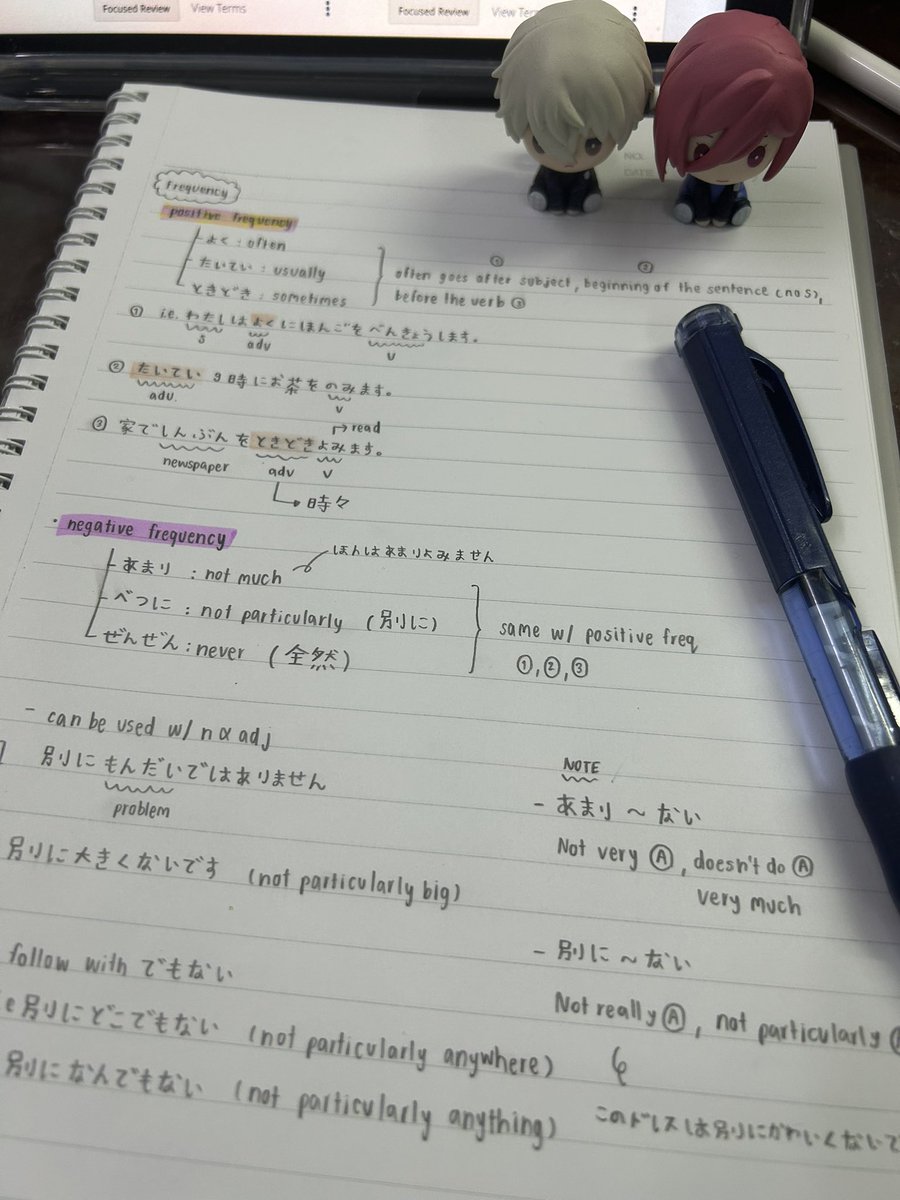 Focused Review View Terms Focused Review View
NO.
DATE
frequency
positive frequency
よく : often
たいてい : usually
ときどき : sometimes
often goes after subject, beginning of the sentence (no s),
① ②
before the verb ③
① i.e. わたしはよくにほんごをべんきょうします。
s adv v
② たいてい 9時にお茶をのみます。
adv. v
③ 家でしんぶんをときどきよみます。
read
newspaper adv v
時々
negative frequency
あまり : not much
ほんはあまりよみません
べつに : not particularly (別に)
ぜんぜん : never (全然)
same w/ positive freq
①, ②, ③
- can be used w/ n & adj
別にもんだいではありません
problem
別に大きくないです (not particularly big)
follow with でもない
e 別にどこでもない (not particularly anywhere)
別になんでもない (not particularly anything)
NOTE
- あまり 〜 ない
Not very Ⓐ, doesn't do Ⓐ
very much
- 別に 〜 ない
Not really Ⓐ, not particularly
このドレスは別にかわいくないで